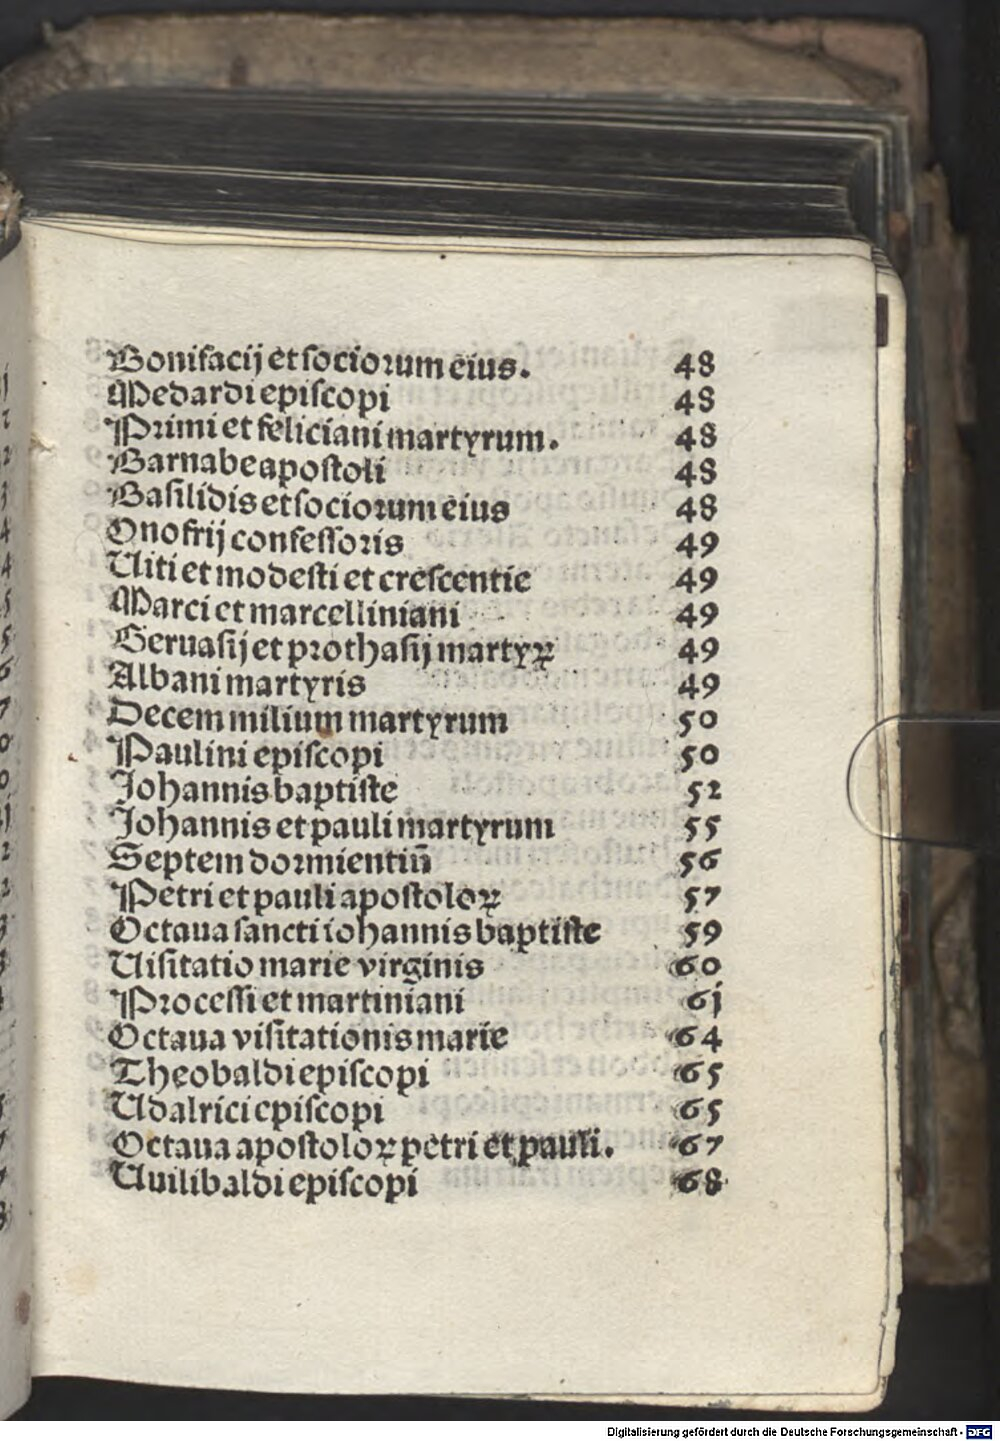 Bonifacij et ſociorum eius. 48
Medardi epiſcopi 48
Primi et feliciani martyrum. 48
Barnabe apoſtoli 48
Baſilidis et ſociorum eius 48
Onofrij confeſſoris 49
Uiti et modeſti et creſcentie 49
Marci et marcelliniani 49
Geruaſij et prothaſij martyꝝ 49
Albani martyris 49
Decem milium martyrum 50
Paulini epiſcopi 50
Johannis baptiſte 52
Johannis et pauli martyrum 55
Septem dormientiū 56
Petri et pauli apoſtoloꝝ 57
Octaua ſancti iohannis baptiſte 59
Uiſitatio marie virginis 60
Proceſſi et martiniani 6j
Octaua viſitationis marie 64
Theobaldi epiſcopi 65
Udalrici epiſcopi 65
Octaua apoſtoloꝝ petri et pauli. 67
Uuilibaldi epiſcopi 68
Digitalisierung gefördert durch die Deutsche Forschungsgemeinschaft - DFG